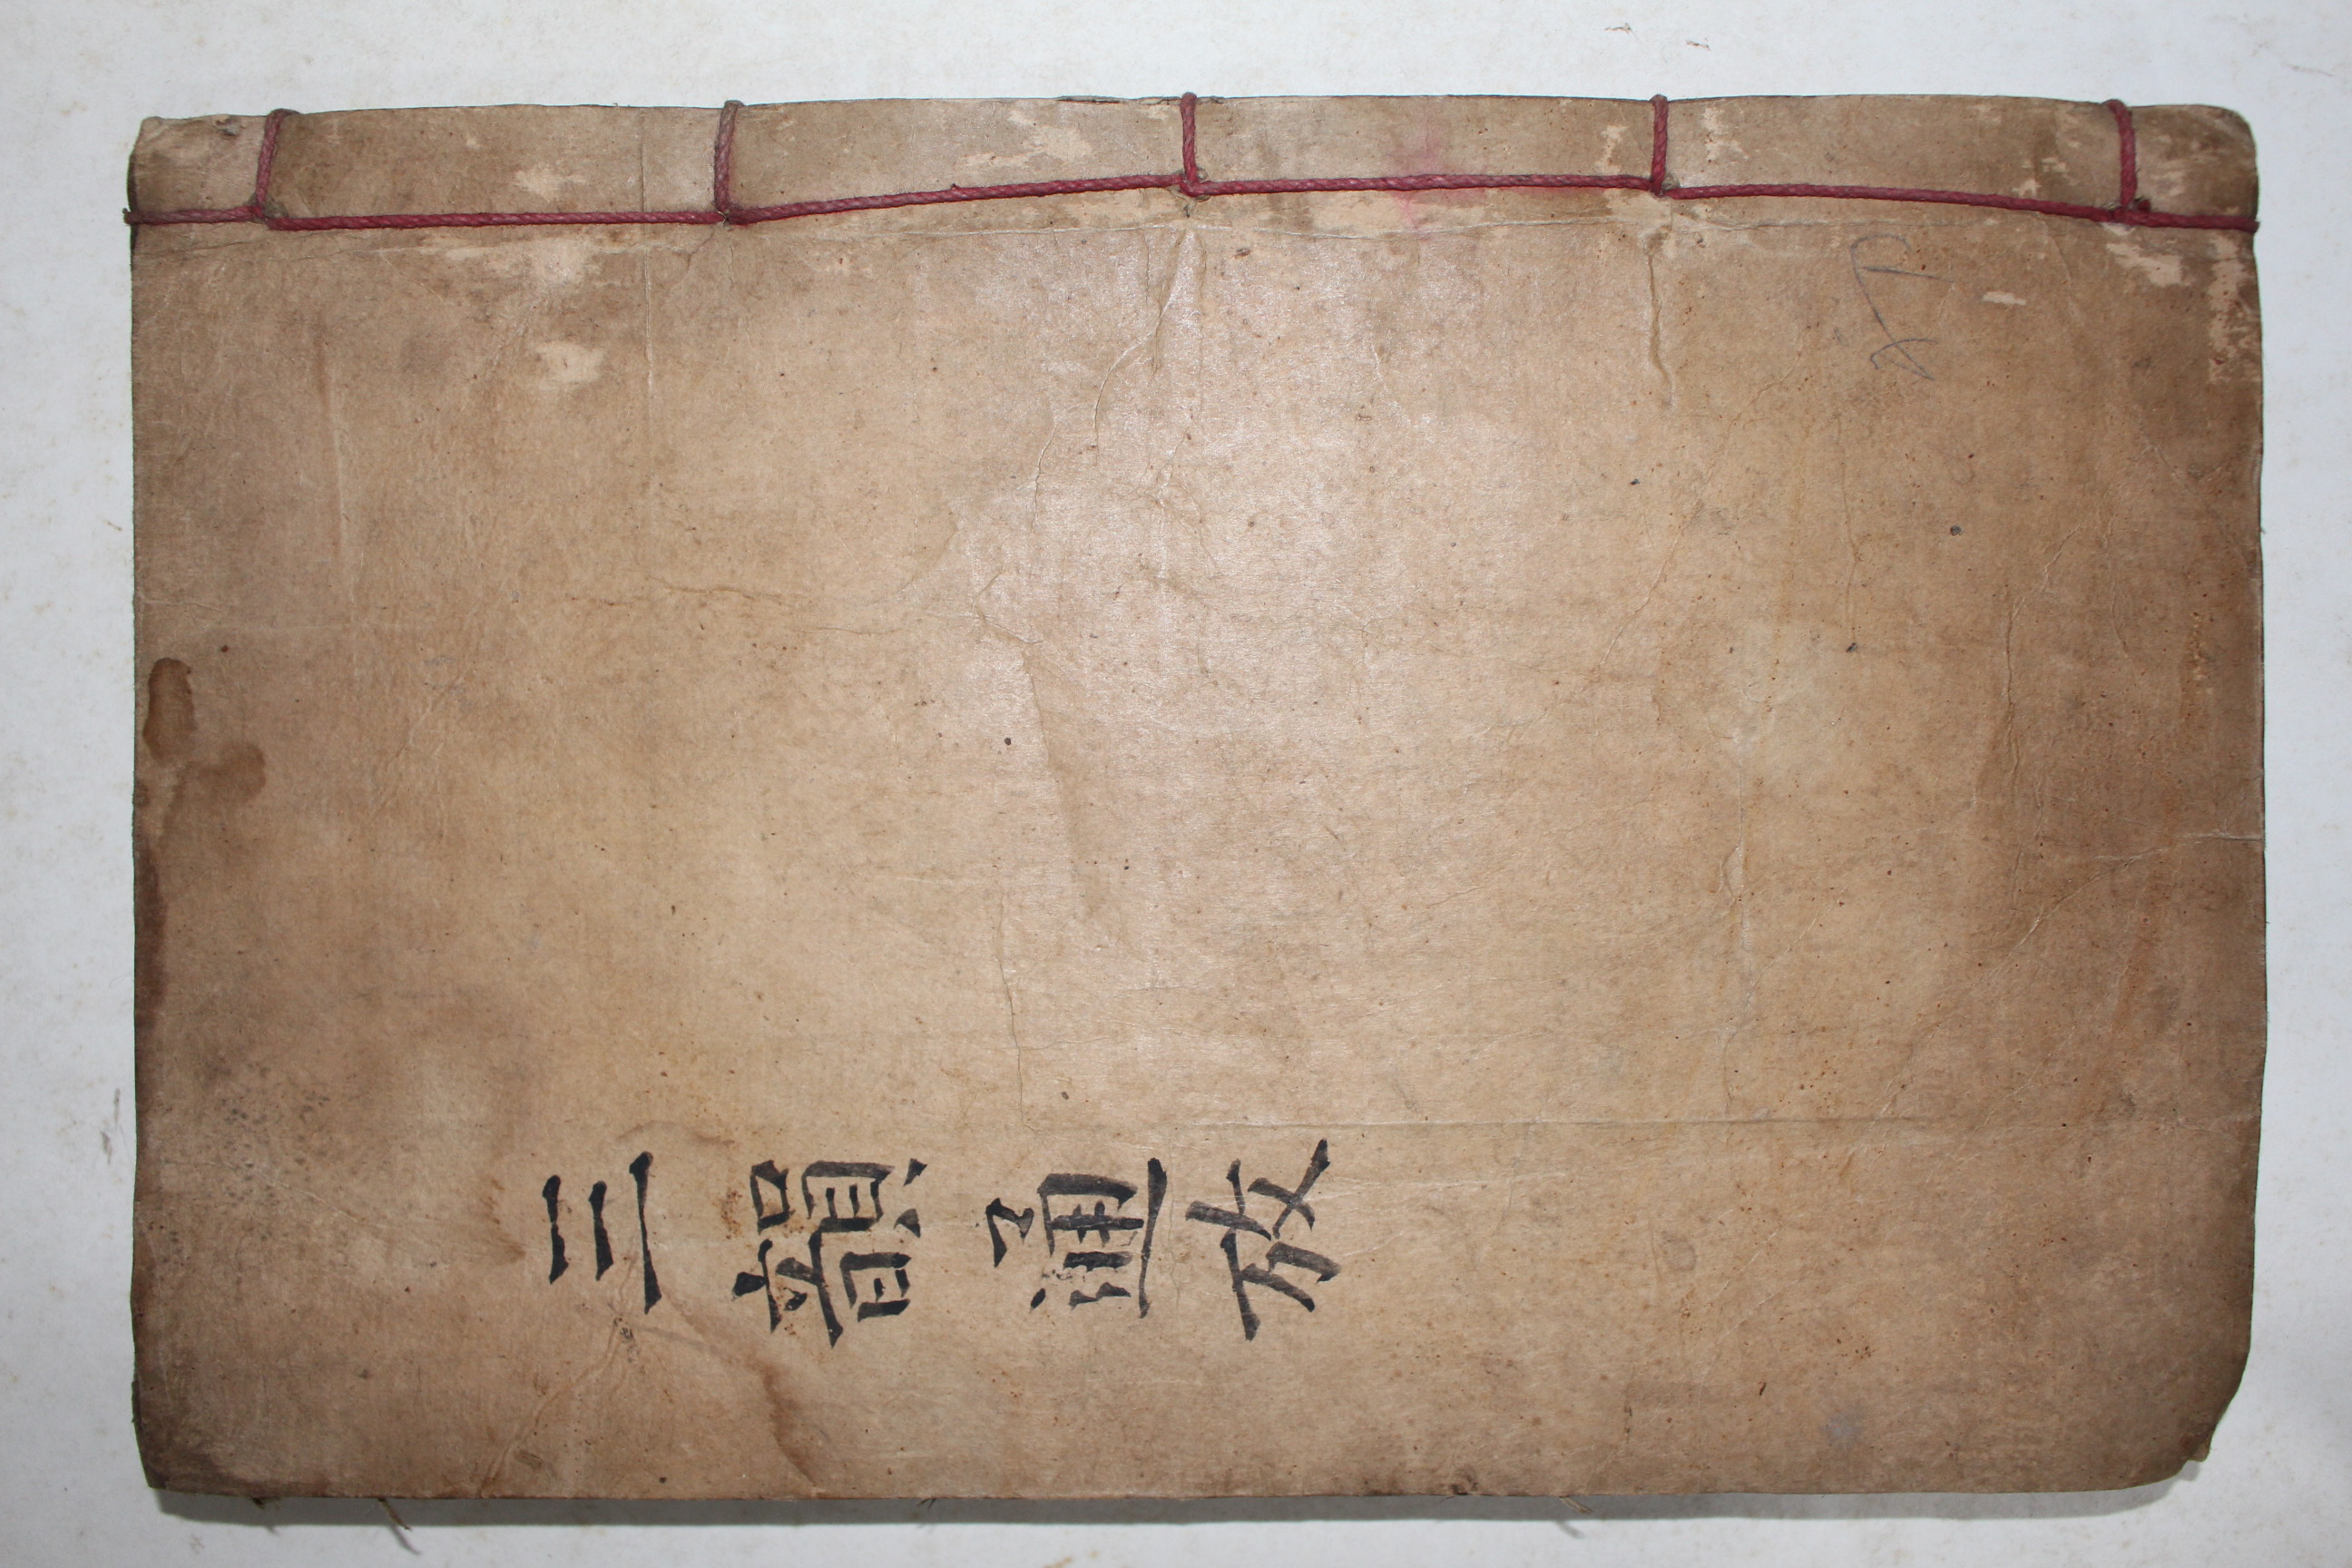 三韻通攷